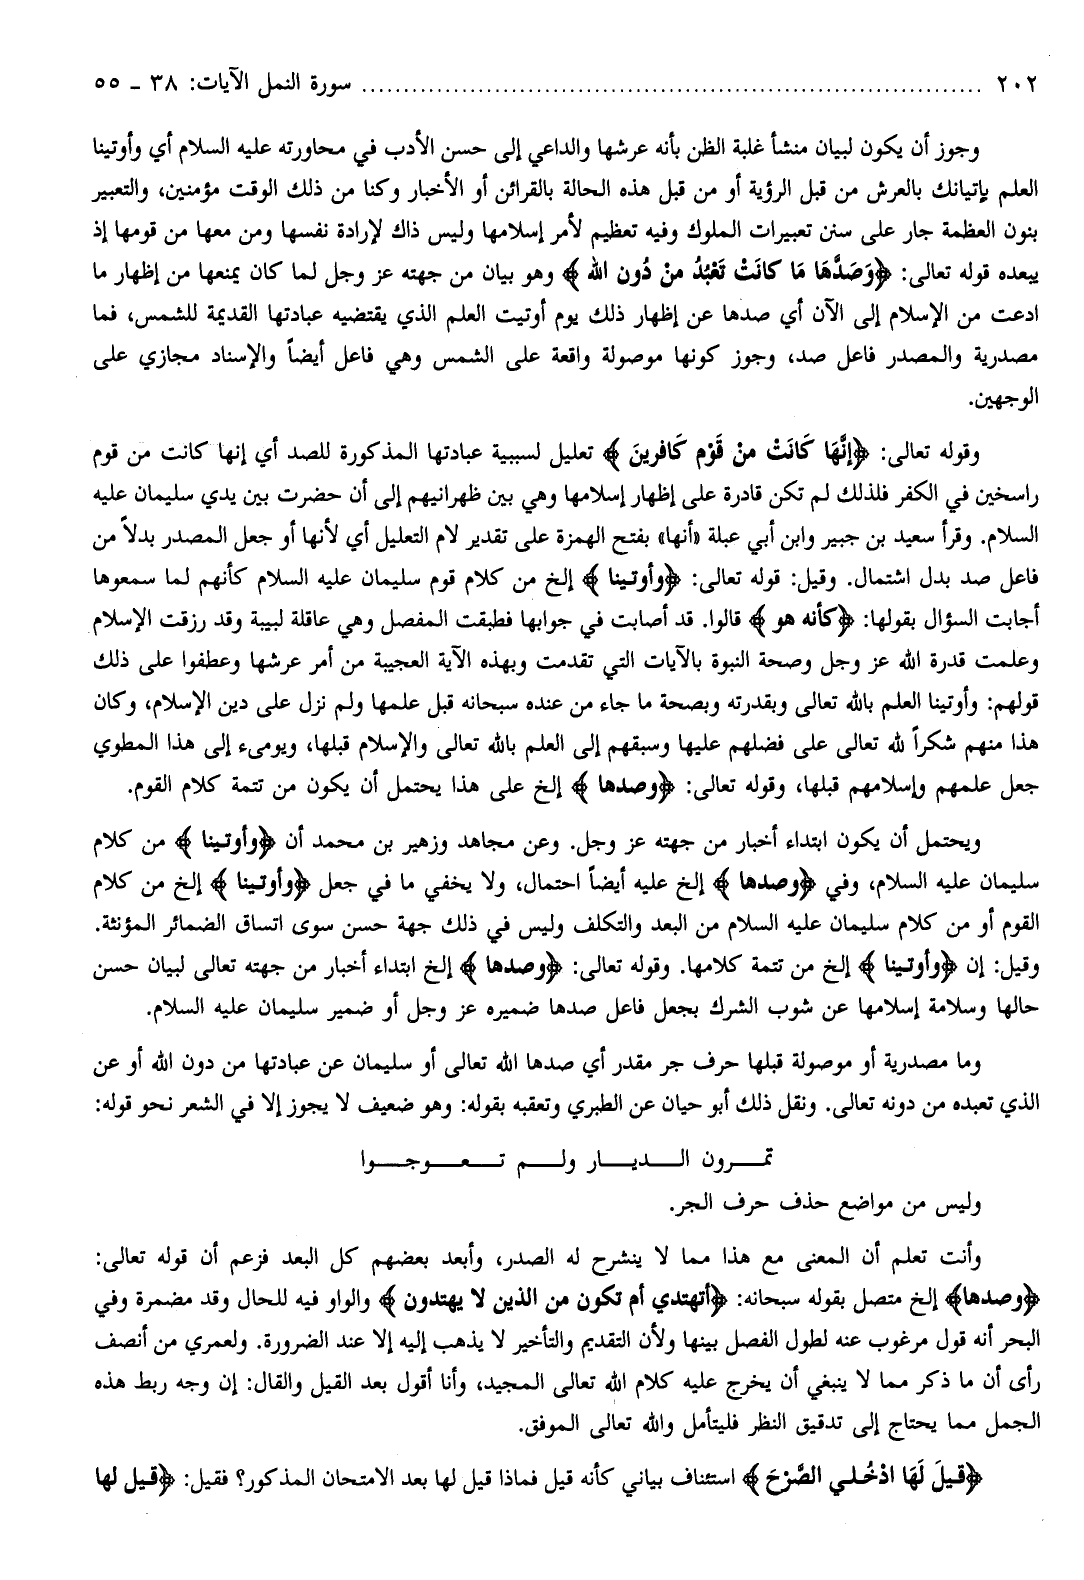 ٢٠٢ ........................................................................ سورة النمل الآيات: ٣٨ ـ ٥٥
وجوز أن يكون لبيان منشأ غلبة الظن بأنه عرشها والداعي إلى حسن الأدب في محاورته عليه السلام أي وأوتينا
العلم بإتيانك بالعرش من قبل الرؤية أو من قبل هذه الحالة بالقرائن أو الأخبار وكنا من ذلك الوقت مؤمنين، والتعبير
بنون العظمة جار على سنن تعبيرات الملوك وفيه تعظيم لأمر إسلامها وليس ذاك لإرادة نفسها ومن معها من قومها إذ
يبعده قوله تعالى: ﴿وَصَدَّهَا مَا كانَتْ تَعْبُدُ منْ دُون اللّه﴾ وهو بيان من جهته عز وجل لما كان يمنعها من إظهار ما
ادعت من الإسلام إلى الآن أي صدها عن إظهار ذلك يوم أوتيت العلم الذي يقتضيه عبادتها القديمة للشمس، فما
مصدرية والمصدر فاعل صد، وجوز كونها موصولة واقعة على الشمس وهي فاعل أيضاً والإسناد مجازي على
الوجهين.
وقوله تعالى: ﴿إنَّهَا كَانَتْ منْ قَوْم كَافرينَ﴾ تعليل لسببية عبادتها المذكورة للصد أي إنها كانت من قوم
راسخين في الكفر فلذلك لم تكن قادرة على إظهار إسلامها وهي بين ظهرانيهم إلى أن حضرت بين يدي سليمان عليه
السلام. وقرأ سعيد بن جبير وابن أبي عبلة «أنها» بفتح الهمزة على تقدير لام التعليل أي لأنها أو جعل المصدر بدلاً من
فاعل صد بدل اشتمال. وقيل: قوله تعالى: ﴿وأوتينا﴾ إلخ من كلام قوم سليمان عليه السلام كأنهم لما سمعوها
أجابت السؤال بقولها: ﴿كأنه هو﴾ قالوا. قد أصابت في جوابها فطبقت المفصل وهي عاقلة لبيبة وقد رزقت الإسلام
وعلمت قدرة الله عز وجل وصحة النبوة بالآيات التي تقدمت وبهذه الآية العجيبة من أمر عرشها وعطفوا على ذلك
قولهم: وأوتينا العلم بالله تعالى وبقدرته وبصحة ما جاء من عنده سبحانه قبل علمها ولم نزل على دين الإسلام، وكان
هذا منهم شكراً لله تعالى على فضلهم عليها وسبقهم إلى العلم بالله تعالى والإسلام قبلها، ويومىء إلى هذا المطوي
جعل علمهم وإسلامهم قبلها، وقوله تعالى: ﴿وصدها﴾ إلخ على هذا يحتمل أن يكون من تتمة كلام القوم.
ويحتمل أن يكون ابتداء أخبار من جهته عز وجل. وعن مجاهد وزهير بن محمد أن ﴿وأوتينا﴾ من كلام
سليمان عليه السلام، وفي ﴿وصدها﴾ إلخ عليه أيضاً احتمال، ولا يخفي ما في جعل ﴿وأوتينا﴾ إلخ من كلام
القوم أو من كلام سليمان عليه السلام من البعد والتكلف وليس في ذلك جهة حسن سوى اتساق الضمائر المؤنثة.
وقيل: إن ﴿وأوتينا﴾ إلخ من تتمة كلامها. وقوله تعالى: ﴿وصدها﴾ إلخ ابتداء أخبار من جهته تعالى لبيان حسن
حالها وسلامة إسلامها عن شوب الشرك بجعل فاعل صدها ضميره عز وجل أو ضمير سليمان عليه السلام.
وما مصدرية أو موصولة قبلها حرف جر مقدر أي صدها الله تعالى أو سليمان عن عبادتها من دون الله أو عن
الذي تعبده من دونه تعالى. ونقل ذلك أبو حيان عن الطبري وتعقبه بقوله: وهو ضعيف لا يجوز إلا في الشعر نحو قوله:
تمـــرون الـــديـــار ولـــم تـــعـــوجـــوا
وليس من مواضع حذف حرف الجر.
وأنت تعلم أن المعنى مع هذا مما لا ينشرح له الصدر، وأبعد بعضهم كل البعد فزعم أن قوله تعالى:
﴿وصدها﴾ إلخ متصل بقوله سبحانه: ﴿أتهتدي أم تكون من الذين لا يهتدون﴾ والواو فيه للحال وقد مضمرة وفي
البحر أنه قول مرغوب عنه لطول الفصل بينها ولأن التقديم والتأخير لا يذهب إليه إلا عند الضرورة. ولعمري من أنصف
رأى أن ما ذكر مما لا ينبغي أن يخرج عليه كلام الله تعالى المجيد، وأنا أقول بعد القيل والقال: إن وجه ربط هذه
الجمل مما يحتاج إلى تدقيق النظر فليتأمل والله تعالى الموفق.
﴿قيلَ لَهَا ادْخُلي الصَّرْحَ﴾ استئناف بياني كأنه قيل فماذا قيل لها بعد الامتحان المذكور؟ فقيل: ﴿قيل لها